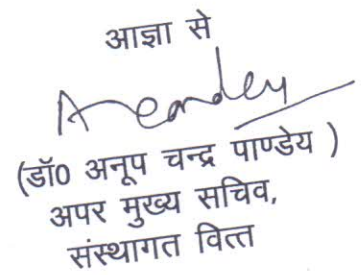 आज्ञा से
(डॉ0 अनूप चन्द्र पाण्डेय )
अपर मुख्य सचिव,
संस्थागत वित्त